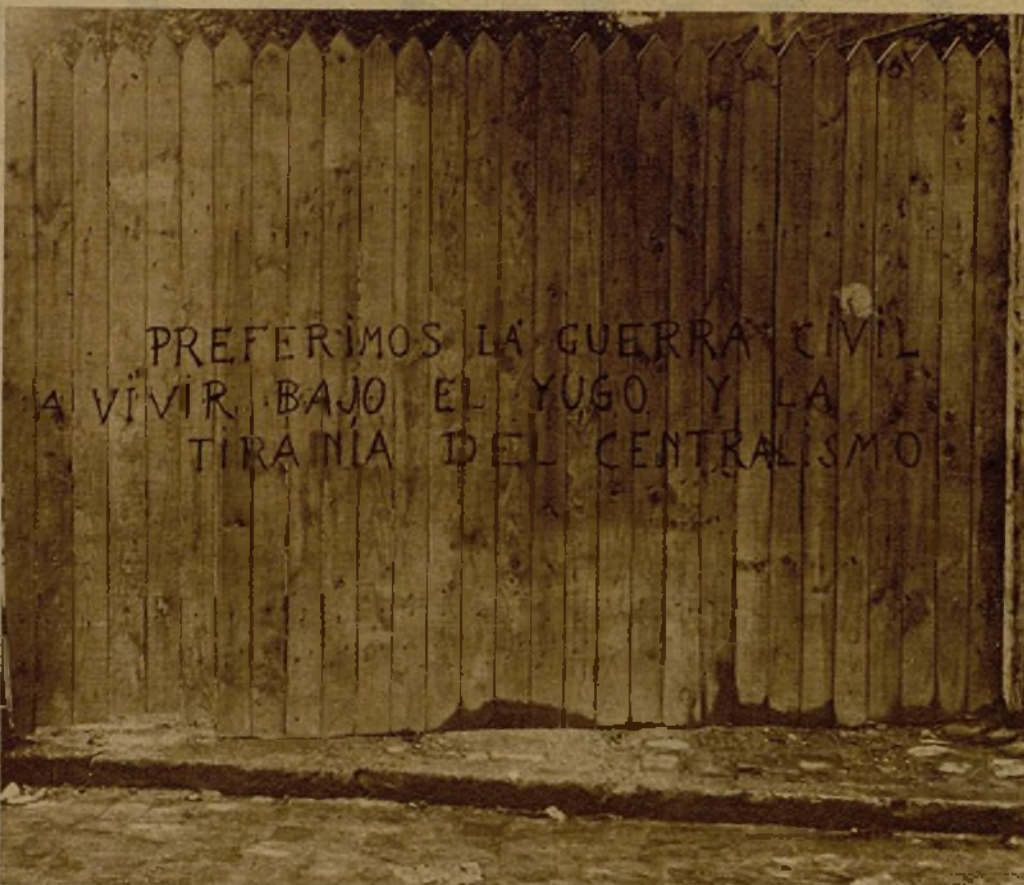 PREFERIMOS LA GUERRA CIVIL
A VIVIR BAJO EL YUGO Y LA
TIRANÍA DEL CENTRALISMO